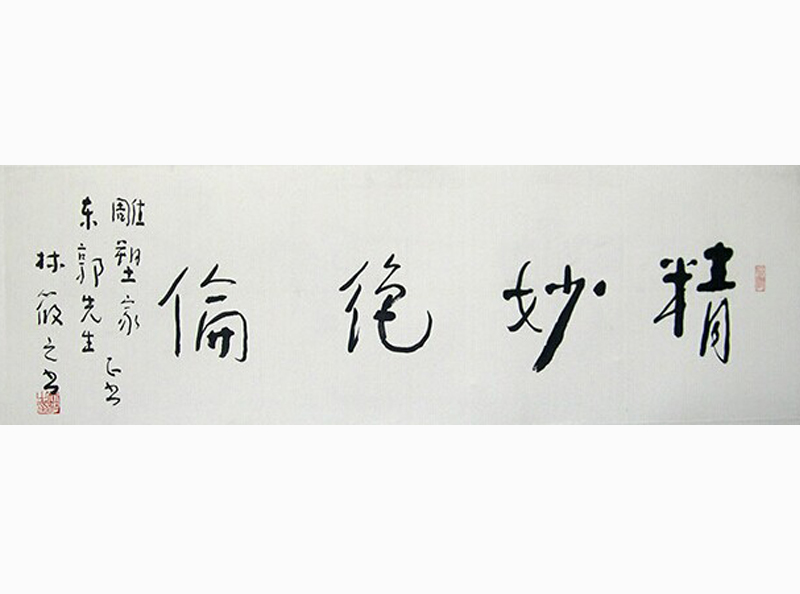 精妙绝倫
雕塑家
东郭先生正书
林筱之书